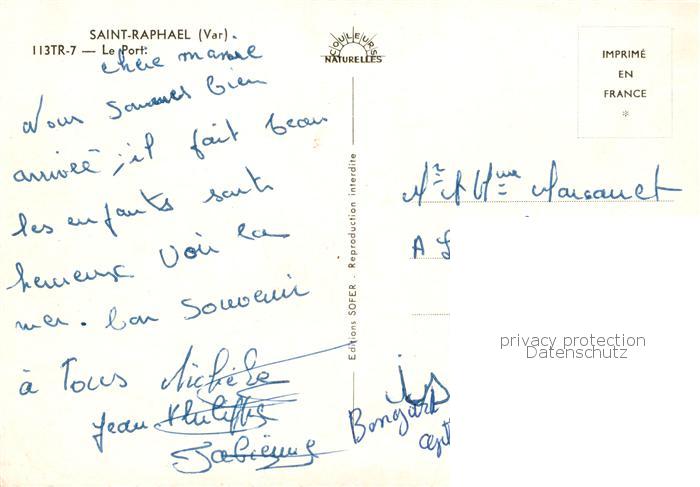 SAINT-RAPHAEL (Var).
113TR-7 — Le Port.
chère mamie
Nous sommes bien
arrivée, il fait beau
les enfants sont
heureux voir la
mer. bon souvenir
à Tous Michèle
Jean Philippe
Fabienne
COULEURS
NATURELLES
Editions SOFER - Reproduction interdite
IMPRIMÉ
EN
FRANCE
*
Mr et Mme
A
privacy protection
Datenschutz